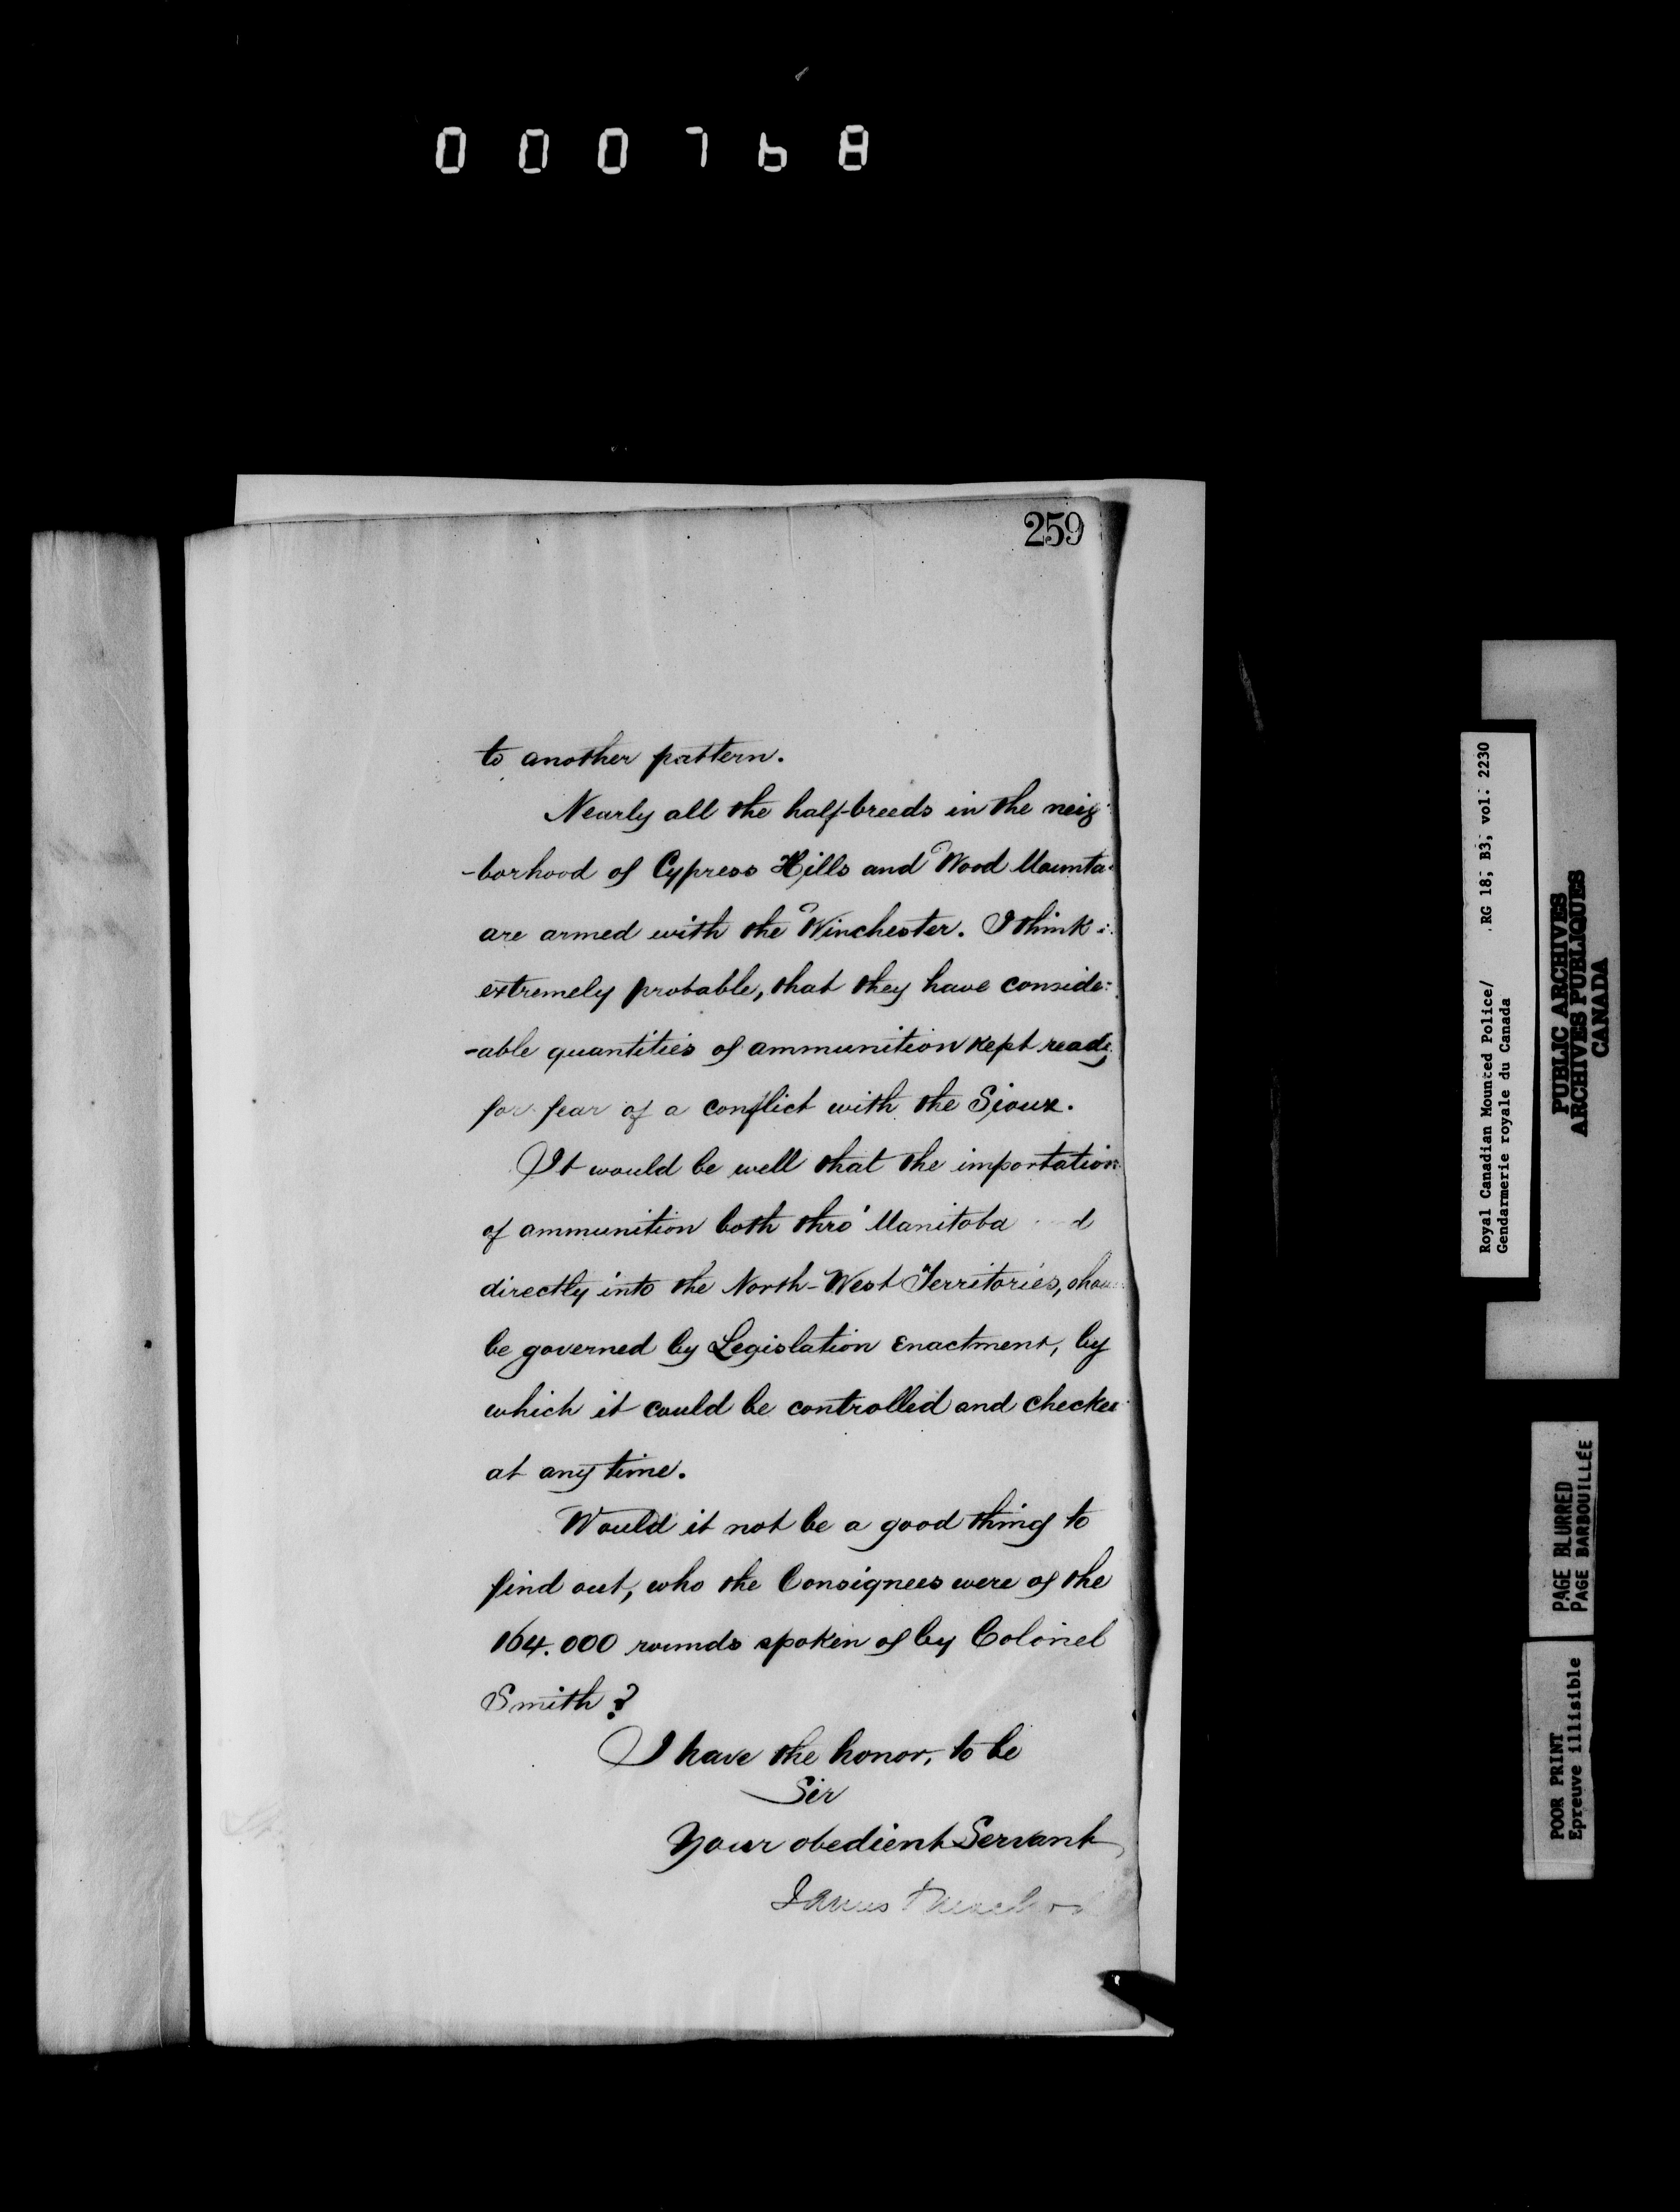 000768
259
to another pattern.
Nearly all the half-breeds in the neig
-borhood of Cypress Hills and Wood Mounta
are armed with the Winchester. I think i
extremely probable, that they have conside
-able quantities of ammunition kept ready
for fear of a conflict with the Sioux.
It would be well that the importation
of ammunition both thro' Manitoba
directly into the North-West Territories, shou
be governed by Legislation Enactment, by
which it could be controlled and checked
at any time.
Would it not be a good thing to
find out, who the Consignees were of the
164.000 rounds spoken of by Colonel
Smith?
I have the honor, to be
Sir
Your obedient Servant
James
Royal Canadian Mounted Police/ RG 18, B3, vol. 2230
Gendarmerie royale du Canada
PUBLIC ARCHIVES
ARCHIVES PUBLIQUES
CANADA
PAGE BLURRED
PAGE BARBOUILLÉE
POOR PRINT
Epreuve illisible